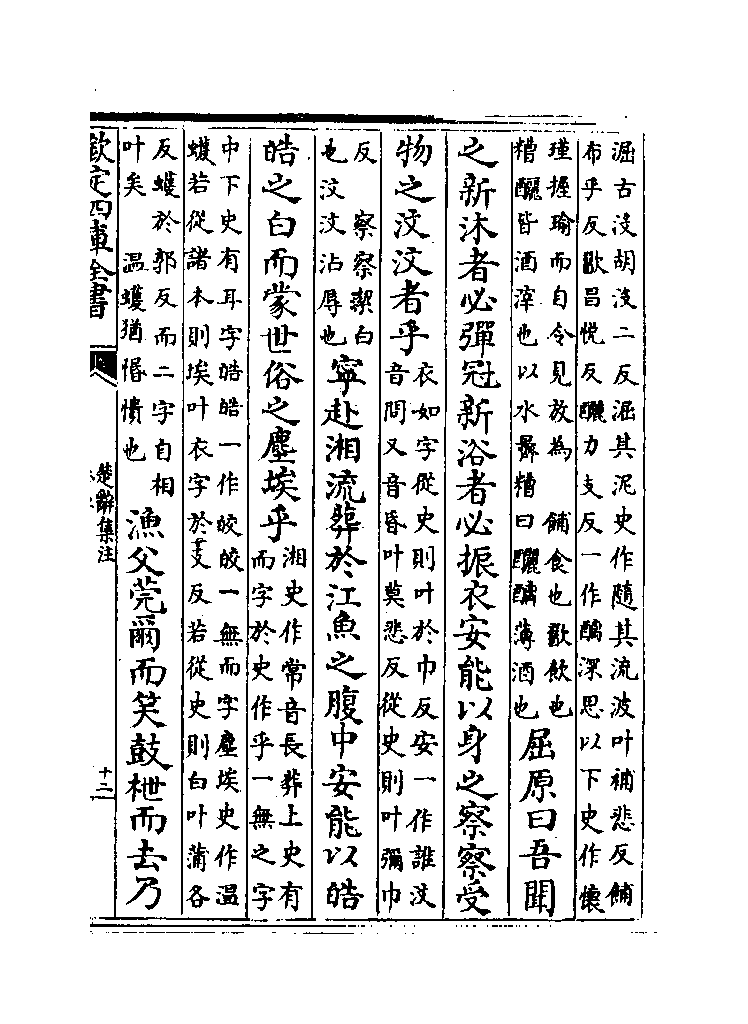 淈古沒胡沒二反淈其泥史作隨其流波叶補悲反餔
布乎反歠昌悅反釃力支反一作醨深思以下史作懷
瑾握瑜而自令見放為　餔食也歠飲也
糟釃皆酒滓也以水䰞糟曰釃醨薄酒也
屈原曰吾聞
之新沐者必彈冠新浴者必振衣安能以身之察察受
物之汶汶者乎
衣如字從史則叶於巾反安一作誰汶
音問又音昏叶莫悲反從史則叶彌巾
反　察察潔白
也汶汶沾辱也
寧赴湘流葬於江魚之腹中安能以皓
皓之白而蒙世俗之塵埃乎
湘史作常音長葬上史有
而字於史作乎一無之字
中下史有耳字皓皓一作皎皎一無而字塵埃史作温
蠖若從諸本則埃叶衣字於支反若從史則白叶蒲各
反蠖於郭反而二字自相
叶矣　温蠖猶惛憒也
漁父莞爾而笑鼓枻而去乃
欽定四庫全書
楚辭集注
十二